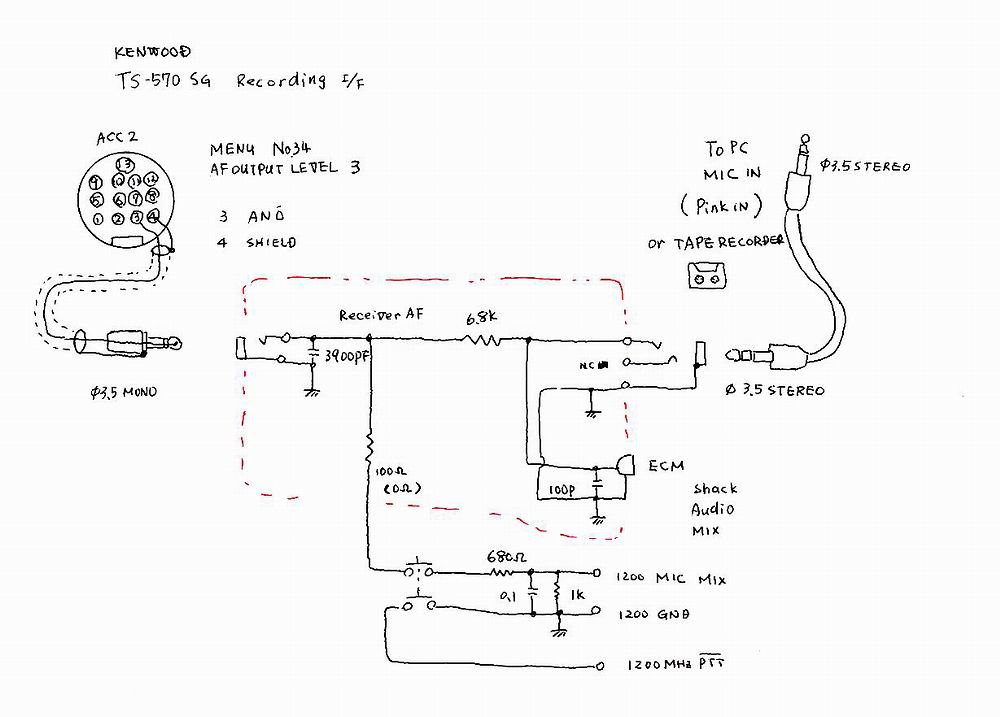 KENWOOD
TS-570 SG Recording I/F
ACC 2
13
9 10 11 12
5 6 7 8
1 2 3 4
MENU No.34
AF OUTPUT LEVEL 3
3 ANO
4 SHIELD
φ3.5 MONO
To PC
MIC IN
(Pink IN)
or TAPE RECORDER
φ3.5 STEREO
Receiver AF
6.8k
3900PF
NC
φ 3.5 STEREO
100Ω
(0Ω)
100P
ECM
Shack
Audio
MIX
680Ω
0.1
1k
1200 MIC MIX
1200 GND
1200MHz PTT